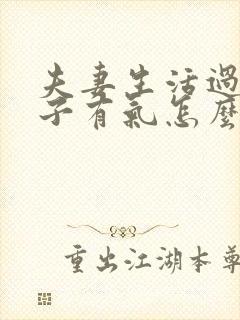 夫妻生活過
子有氣怎麼
重出江湖本尊